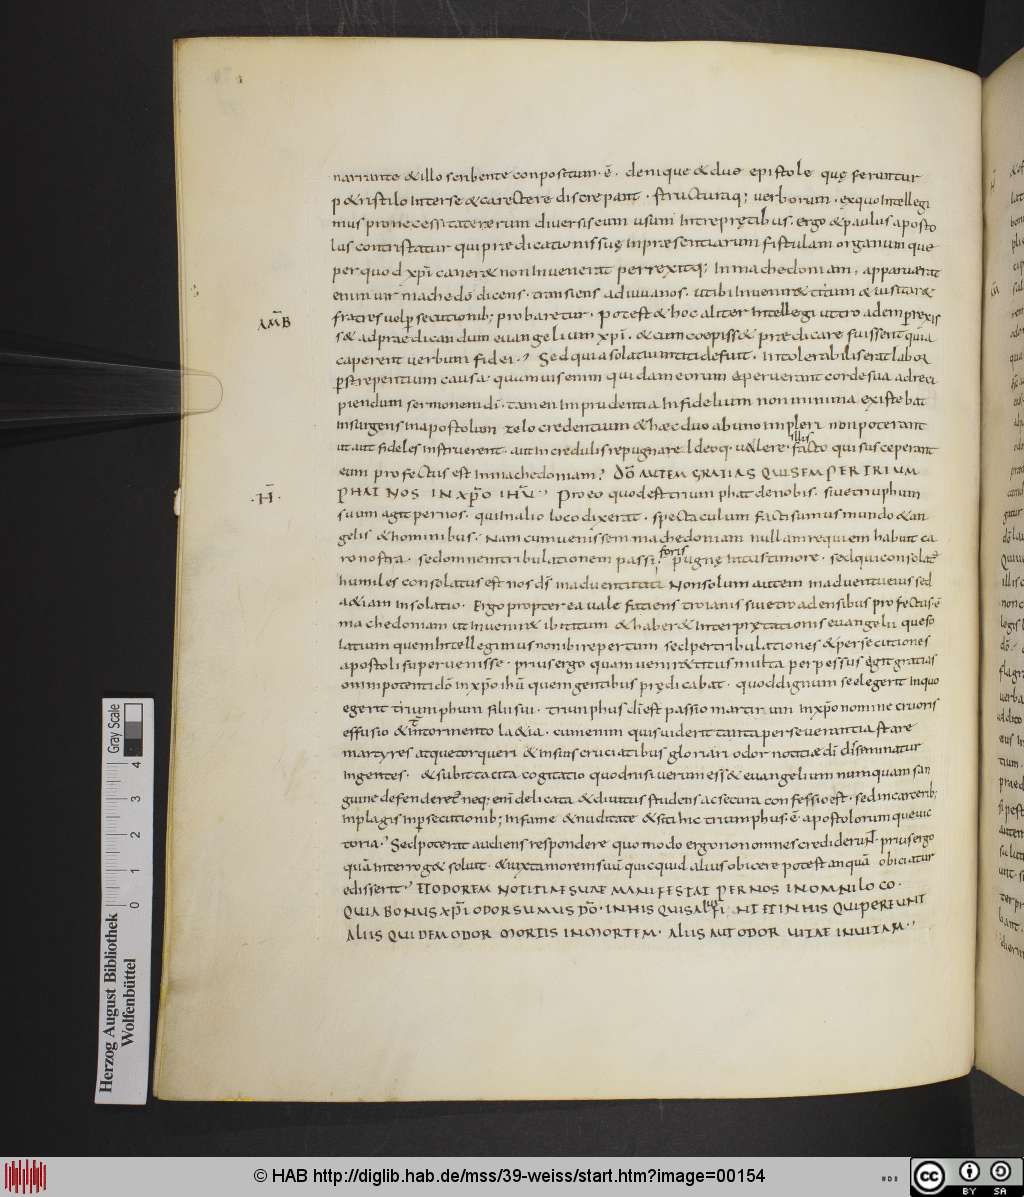 narrante & illo scribente conpositum · ē · denique & duę epistolę quę feruntur
p&ri stilo inter se & carectere discrepant · structuraq; uerborum · ex quo intellegi
mus pro necessitate rerum diuersis eum usum interpretibus · ergo & paulus aposto
lus contristatur qui prædicationis suę inpræsentiarum fistulam organumque
per quod xp̄i caner& non inuenerat perrexitq; in machedoniam, apparuerat
enim uir machedo dicens · transiens adiuua nos · ut ibi inuenir& titum & uisitar&
AM̄B
fratres uel persecutionib; probaretur · Potest & hoc aliter intellegi uitro adem perrexis
s& ad prædicandum euangelium xp̄i · & cum coepiss& prædicare fuissent qui a
caperent uerbum fidei · Sed quia solatium titi defuit · intolerabilis erat labor
perstrepentium causa quamuis enim quidam eorum aperuerant corde sua ad reci
piendum sermonem dī · tamen imprudentia infidelium non minima existebat
insurgens in apostolum zelo credentium & hæc duo ab uno impleri non poterant
illis
ut aut fideles instruerent · aut incredulis repugnare · Ideoq; uale facto qui susceperant
eum profectus est in machedoniam? DŌ AUTEM GRATIAS QUI SEMPER TRIUM
· H̄ ·
PHAT NOS IN XP̄O IHŪ · Pro eo quod est triumphat de nobis · siue triumphum
suum agit per nos · qui in alio loco dixerat · spectaculum facti sumus mundo & an
gelis & hominibus · Nam cum uenissem machedoniam nullam requiem habuit ca
foris
ro nostra · sed omnem tribulationem passi · pugnę intus timore · sed qui consolat
humiles consolatus est nos dš in aduentu titi Non solum autem in aduentu eius sed
a &iam in solatio · Ergo propterea uale faciens troianis siue troadensibus profectus · ē
machedoniam ut inuenir& ibi titum & haber& interpretationis euangelii queso
latium quem intellegimus non ibi repertum sed per tribulationes & persecutiones
apostoli superuenisse · prius ergo quam uenir& titus multa perpessus egit gratias
omnipotenti dō in xp̄o ihū quem gentibus prędicabat · quod dignum se elegerit in quo
egerit triumphum filii sui · triumphus dī est passio martirum in xp̄o nomine cruoris
effusio & in tormento lætitia · cum enim quis uiderit tanta perseuerantia stare
martyres atque torqueri & in suis cruciatibus gloriari odor notitiæ dī disseminatur
in gentes · & subit tacita cogitatio quod nisi uerum ess& euangelium numquam san
guine defenderetur neq; enī delicata & diuitiis studens ac secura confessio est · sed in carcerib;
in plagis in persecutionib; in fame & nuditate & siti hic triumphus · ē apostolorumque uic
toria · Sed poterat audiens respondere quomodo ergo non omnes crediderunt · prius ergo
quā interrog& soluit · & iuxta morem suū quicquid alius obicere potest anquā obiciatur
edisserit · ET ODOREM NOTITIAE SUAE MANIFESTAT PER NOS IN OMNI LOCO ·
QUIA BONUS XP̄I ODOR SUMUS DŌ · IN HIS QUI SALUI FIUNT ET IN HIS QUI PEREUNT
ALIIS QUIDEM ODOR MORTIS IN MORTEM · ALIIS AUT ODOR UITAE IN UITAM ·
Gray Scale
0 1 2 3 4
Herzog August Bibliothek
Wolfenbüttel
© HAB http://diglib.hab.de/mss/39-weiss/start.htm?image=00154
HAB
CC BY SA